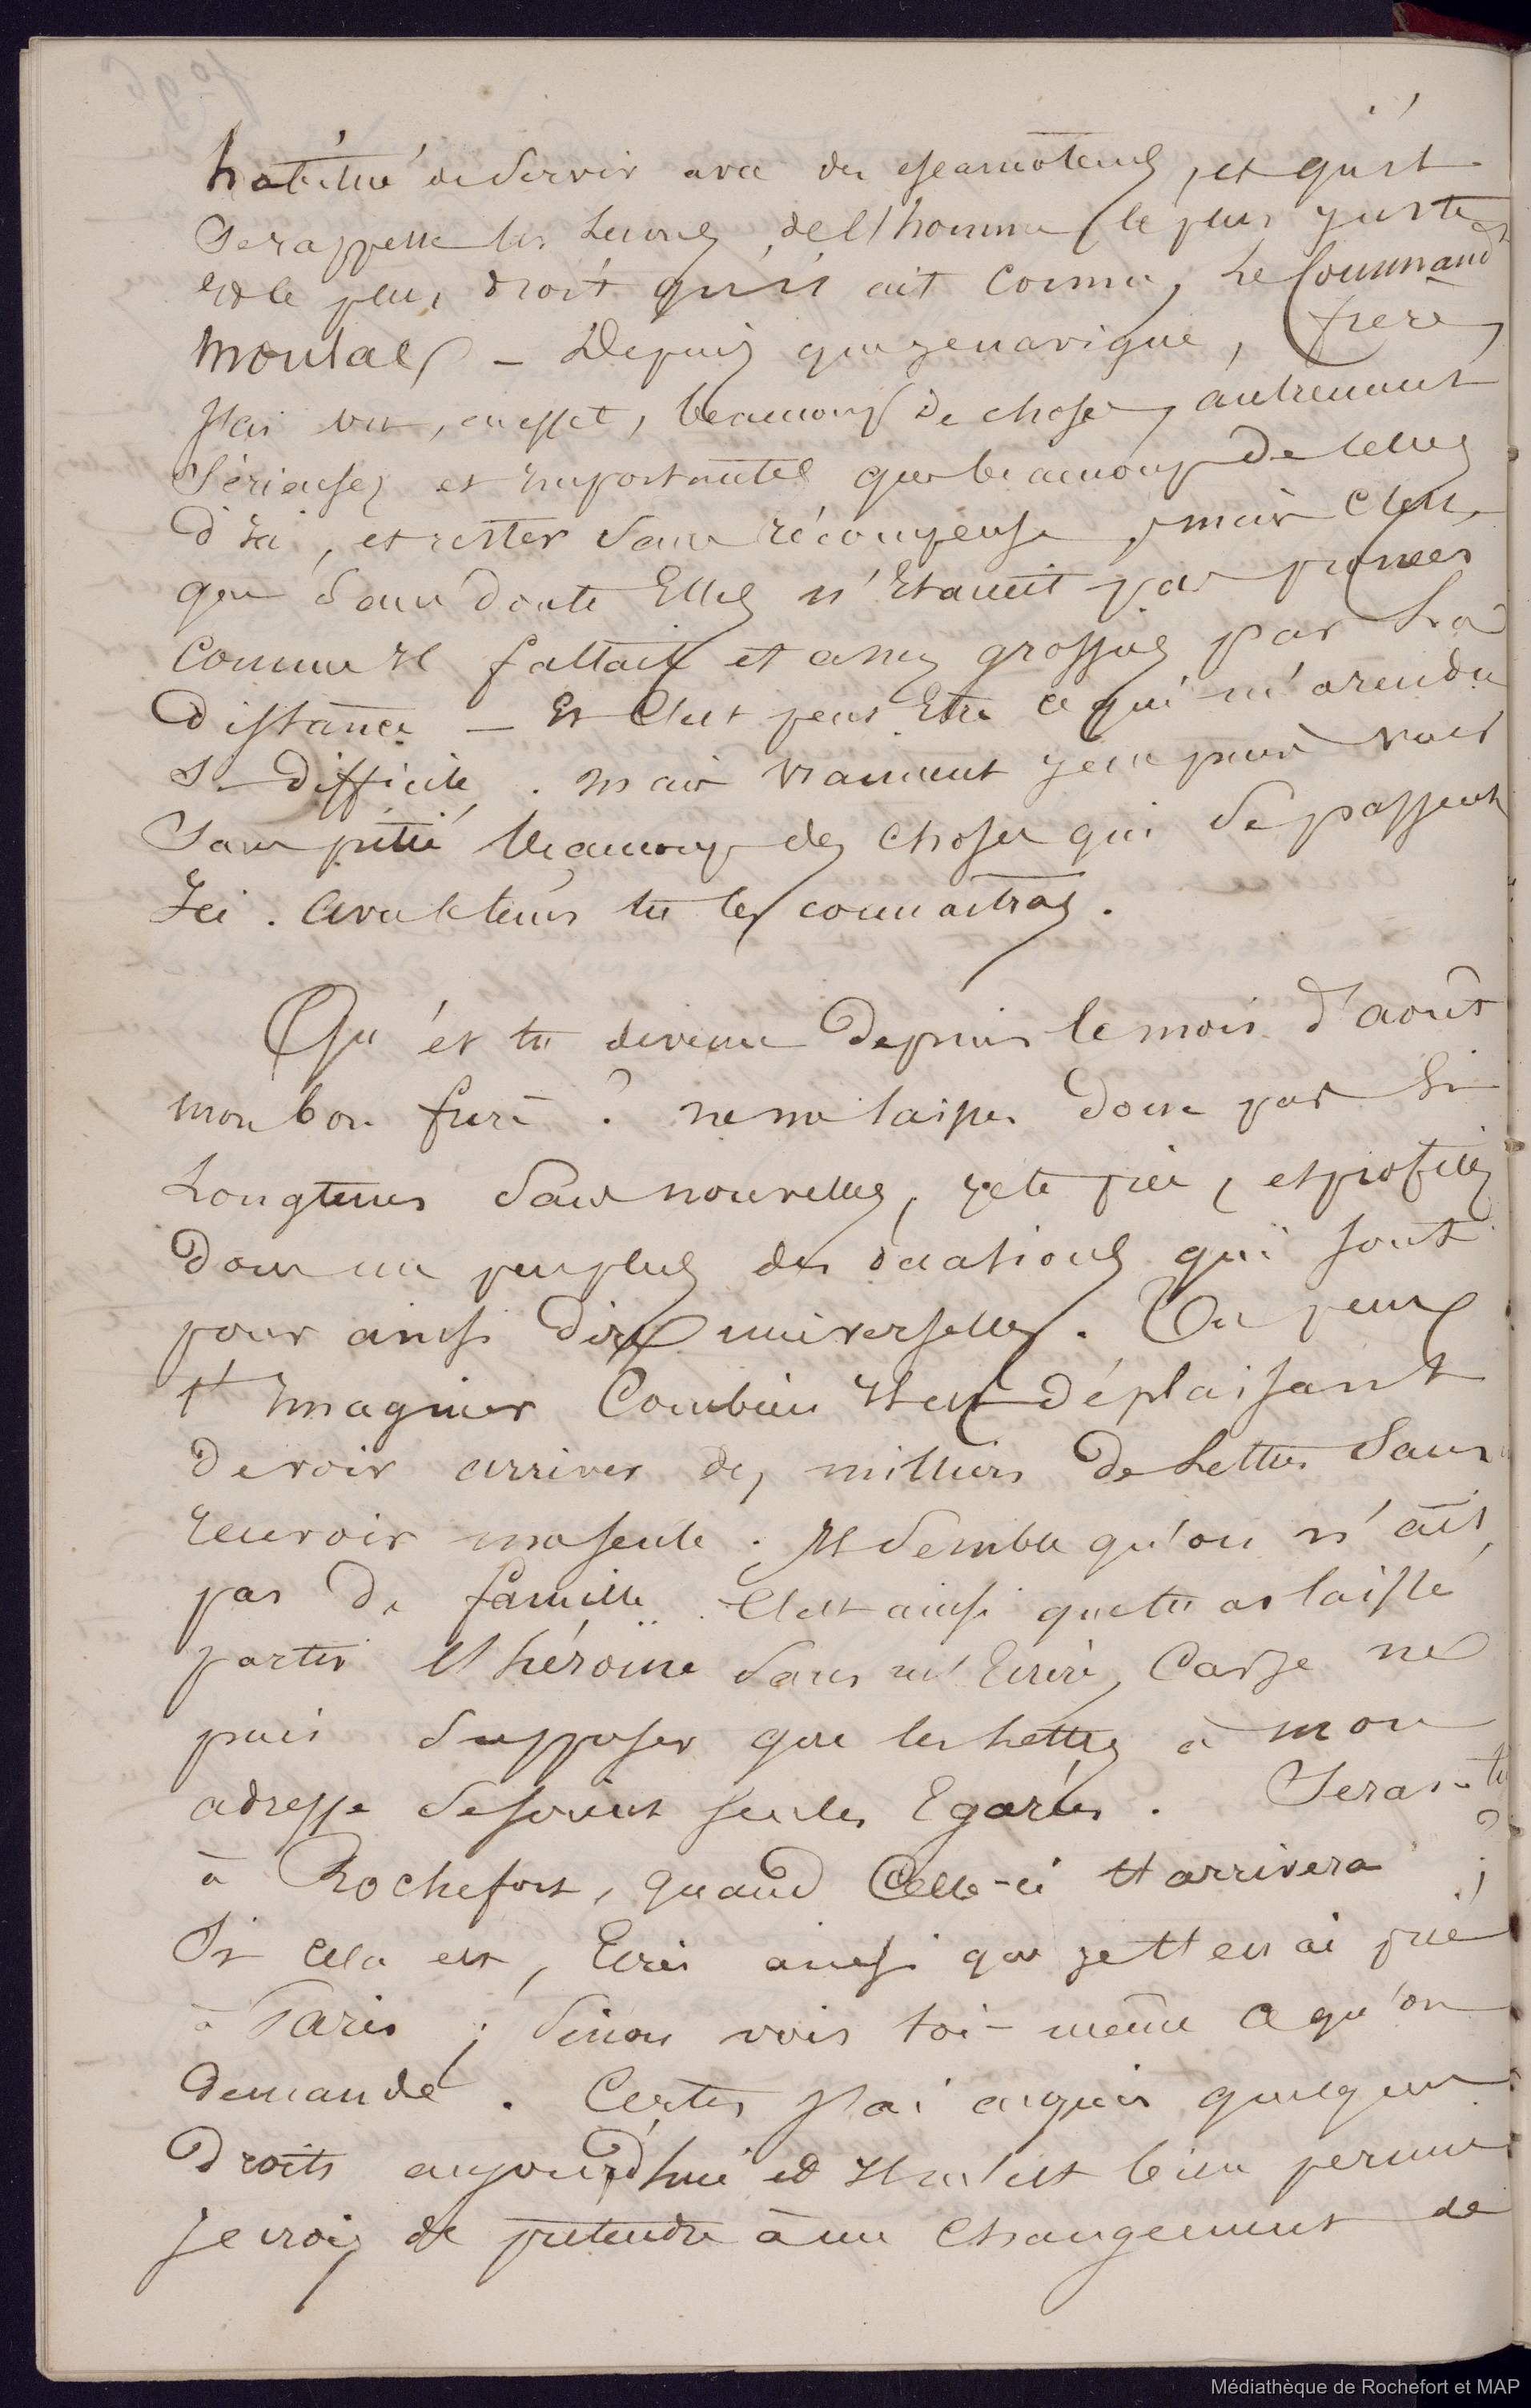 habitué de servir avec des escamoteurs, et qu'il
se rappelle les leçons de l'homme le plus juste
et le plus droit qu'il ait connu, le Command
Moulac — Depuis que je navigue, frère,
j'ai vu, en effet, beaucoup de choses, autrement
sérieuses et importantes que beaucoup de celles
d'ici, et rester sans récompense, mais c'est
que sans doute elles n'étaient pas prônées
comme il fallait et assez grossies par la
distance — Et c'est peut être ce qui m'a rendu
si difficile. mais vraiment je ne puis voir
sans pitié beaucoup des choses qui se passent
ici. avec le tems tu les connaîtras.
Qu'es tu devenu depuis le mois d'août
mon bon frère ? ne me laisses donc pas si
longtems sans nouvelles, je te prie, et profites
donc un peu plus des occasions qui sont
pour ainsi dire universelles. Tu peux
t'imaginer combien il est déplaisant
de voir arriver des milliers de lettres sans
recevoir une seule. Il semble qu'on n'ait
pas de famille. C'est ainsi que tu as laissé
partir l'héroïne sans m'écrire, car je ne
puis supposer que les lettres à mon
adresse se soient seules égarées. Seras-tu
à Rochefort, quand celle-ci t'arrivera ?
Si cela est, écris ainsi que je t'en ai prié
à Paris ; sinon vois toi-même ce qu'on
demande. Certes j'ai acquis quelques
droits aujourd'hui et il m'est bien permis
je crois de prétendre à un changement de
Médiathèque de Rochefort et MAP